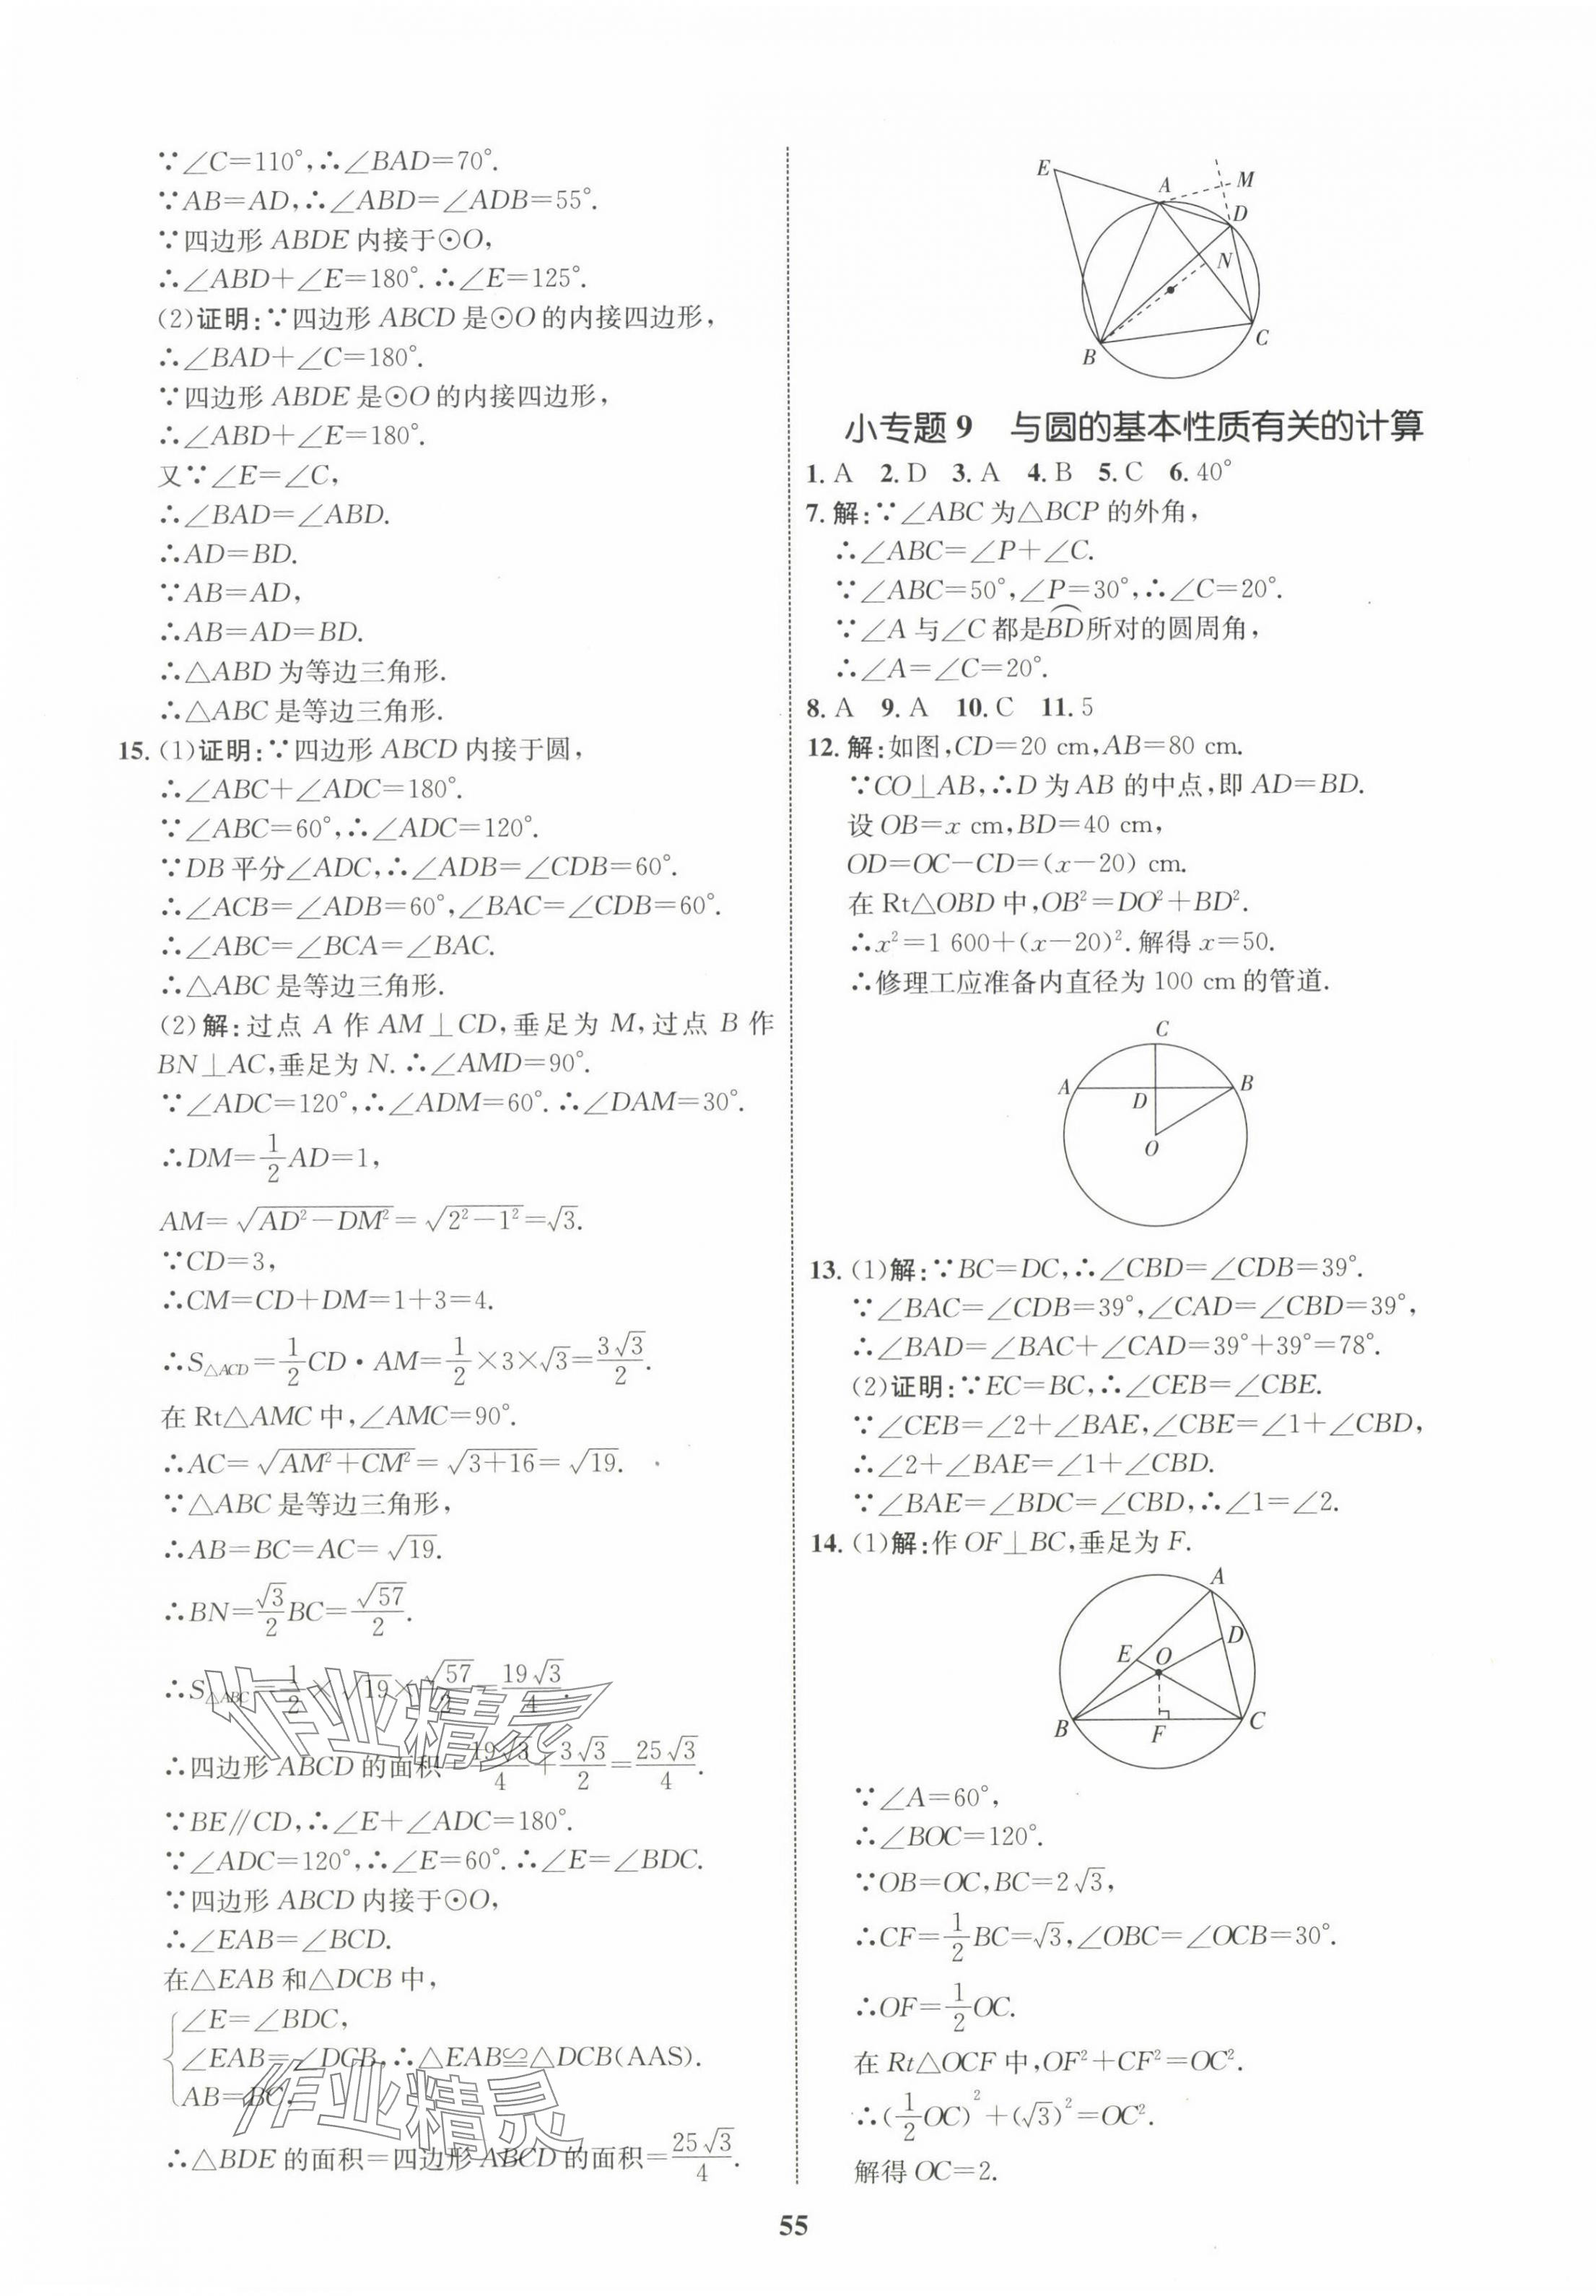 ∵∠C=110°,∴∠BAD=70°.
∵AB=AD,∴∠ABD=∠ADB=55°.
∵四边形 ABDE 内接于⊙O,
∴∠ABD+∠E=180°.∴∠E=125°.
(2)证明:∵四边形 ABCD 是⊙O的内接四边形,
∴∠BAD+∠C=180°.
∵四边形 ABDE 是⊙O的内接四边形,
∴∠ABD+∠E=180°.
又∵∠E=∠C,
∴∠BAD=∠ABD.
∴AD=BD.
∵AB=AD,
∴AB=AD=BD.
∴△ABD 为等边三角形.
∴△ABC 是等边三角形.
15.(1)证明:∵四边形 ABCD 内接于圆,
∴∠ABC+∠ADC=180°.
∵∠ABC=60°,∴∠ADC=120°.
∵DB 平分∠ADC,∴∠ADB=∠CDB=60°.
∴∠ACB=∠ADB=60°,∠BAC=∠CDB=60°.
∴∠ABC=∠BCA=∠BAC.
∴△ABC 是等边三角形.
(2)解:过点 A 作 AM⊥CD,垂足为 M,过点 B 作
BN⊥AC,垂足为 N.∴∠AMD=90°.
∵∠ADC=120°,∴∠ADM=60°.∴∠DAM=30°.
∴DM=1/2 AD=1,
AM=√(AD²-DM²)=√(2²-1²)=√3.
∵CD=3,
∴CM=CD+DM=1+3=4.
∴S△ACD=1/2 CD·AM=1/2×3×√3=3√3/2.
在 Rt△AMC 中,∠AMC=90°.
∴AC=√(AM²+CM²)=√(3+16)=√19.
∵△ABC 是等边三角形,
∴AB=BC=AC=√19.
∴BN=√3/2 BC=√57/2.
∴S△ABC=1/2×√19×√57/2=19√3/4.
∴四边形 ABCD 的面积=19√3/4+3√3/2=25√3/4.
∵BE∥CD,∴∠E+∠ADC=180°.
∵∠ADC=120°,∴∠E=60°.∴∠E=∠BDC.
∵四边形 ABCD 内接于⊙O,
∴∠EAB=∠BCD.
在△EAB 和△DCB 中,
∠E=∠BDC,
∠EAB=∠DCB,∴△EAB≌△DCB(AAS).
AB=BC,
∴△BDE 的面积=四边形 ABCD 的面积=25√3/4.
作业精灵
作业精灵
E
A
M
D
N
C
B
小专题 9 与圆的基本性质有关的计算
1. A 2. D 3. A 4. B 5. C 6. 40°
7. 解:∵∠ABC 为△BCP 的外角,
∴∠ABC=∠P+∠C.
∵∠ABC=50°,∠P=30°,∴∠C=20°.
∵∠A 与∠C 都是B͡D所对的圆周角,
∴∠A=∠C=20°.
8. A 9. A 10. C 11. 5
12. 解:如图,CD=20 cm,AB=80 cm.
∵CO⊥AB,∴D 为 AB 的中点,即 AD=BD.
设 OB=x cm,BD=40 cm,
OD=OC-CD=(x-20) cm.
在 Rt△OBD 中,OB²=DO²+BD².
∴x²=1 600+(x-20)².解得 x=50.
∴修理工应准备内直径为 100 cm 的管道.
C
A
B
D
O
13. (1)解:∵BC=DC,∴∠CBD=∠CDB=39°.
∵∠BAC=∠CDB=39°,∠CAD=∠CBD=39°,
∴∠BAD=∠BAC+∠CAD=39°+39°=78°.
(2)证明:∵EC=BC,∴∠CEB=∠CBE.
∵∠CEB=∠2+∠BAE,∠CBE=∠1+∠CBD,
∴∠2+∠BAE=∠1+∠CBD.
∵∠BAE=∠BDC=∠CBD,∴∠1=∠2.
14. (1)解:作 OF⊥BC,垂足为 F.
A
D
E
O
B
F
C
∵∠A=60°,
∴∠BOC=120°.
∵OB=OC,BC=2√3,
∴CF=1/2 BC=√3,∠OBC=∠OCB=30°.
∴OF=1/2 OC.
在 Rt△OCF 中,OF²+CF²=OC².
∴(1/2 OC)²+(√3)²=OC².
解得 OC=2.
55